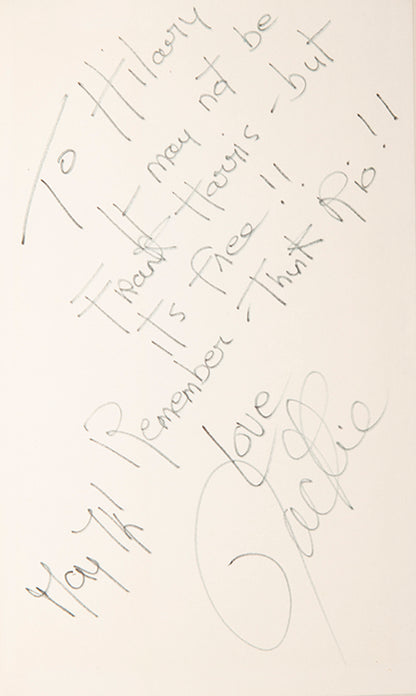 To Hilary
It may not be
Frank Harris - but
its free !!
Remember - Think Rio !!
love
Jackie
May 7th